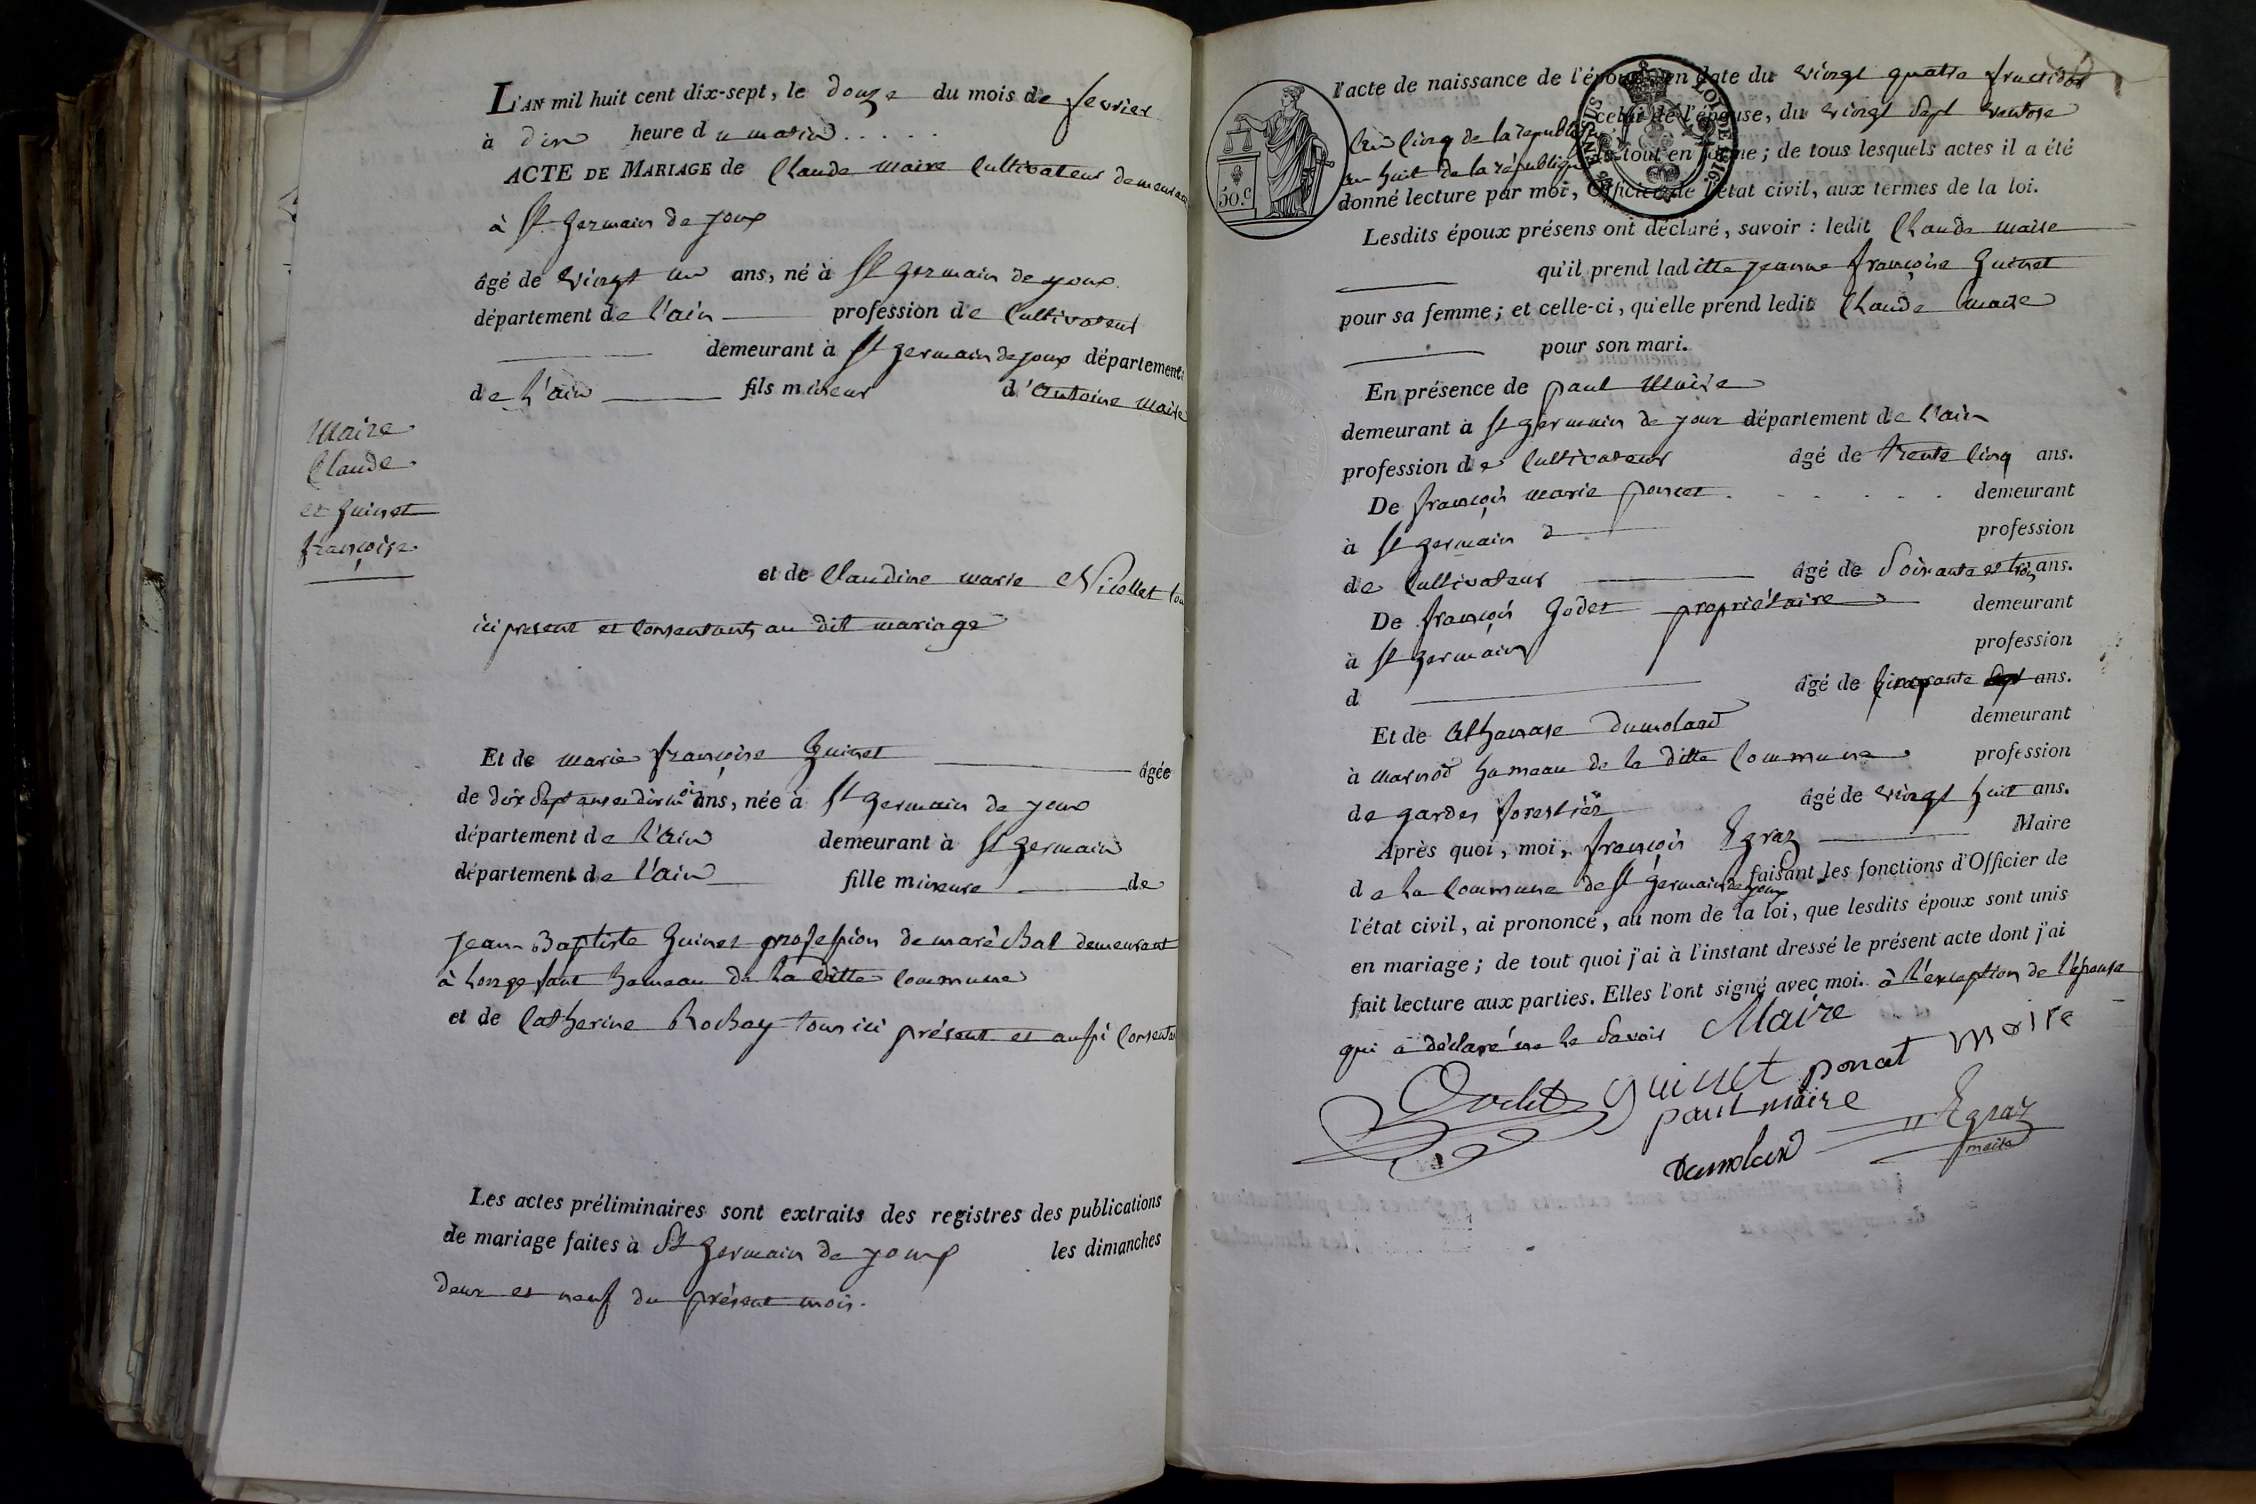 L'AN mil huit cent dix-sept, le douze du mois de fevrier
à dix heure du matin
ACTE DE MARIAGE de Claude Maire Cultivateur demeurant
à St Germain de joux
âgé de vingt un ans, né à St Germain de joux
département de l'ain profession de Cultivateur
demeurant à St Germain de joux département
de l'ain fils mineur d'Antoine Maire
Maire
Claude
et Guinet
françoise
et de Claudine marie Nicollet tous
ici present et Consentants au dit mariage
Et de marie françoise Guinet âgée
de dix Sept ans et dix mois ans, née à St Germain de joux
département de l'ain demeurant à St Germain
département de l'ain fille mineure de
jean Baptiste Guinet profession de maréchal demeurant
à Longefant hameau de la ditte Commune
et de Catherine Rochay tous ici présent et aussi Consentant
Les actes préliminaires sont extraits des registres des publications
de mariage faites à St Germain de joux les dimanches
deux et neuf du présent mois.
50.c
LOI DE 1816
l'acte de naissance de l'époux, en date du vingt quatre fructidor
l'an Cinq de la republique celui de l'épouse, du vingt Sept ventose
an huit de la république le tout en forme; de tous lesquels actes il a été
donné lecture par moi, Officier de l'état civil, aux termes de la loi.
Lesdits époux présens ont déclaré, savoir: ledit Claude Maire
qu'il prend laditte jeanne françoise Guinet
pour sa femme; et celle-ci, qu'elle prend ledit Claude Maire
pour son mari.
En présence de paul Maire
demeurant à St Germain de joux département de l'ain
profession de Cultivateur âgé de trente Cinq ans.
De françois marie poncet demeurant
à St Germain d profession
de Cultivateur âgé de Soixante et trois ans.
De françois Godet propriétaire demeurant
à St Germain profession
d âgé de Cinquante ans.
Et de Athanase Dumolard demeurant
à marnod hameau de la ditte Commune profession
de gardes forestier âgé de vingt huit ans.
Après quoi, moi, françois Egraz Maire
de la Commune de St Germain de joux faisant les fonctions d'Officier de
l'état civil, ai prononcé, au nom de la loi, que lesdits époux sont unis
en mariage; de tout quoi j'ai à l'instant dressé le présent acte dont j'ai
fait lecture aux parties. Elles l'ont signé avec moi. à l'exception de l'épouse
qui a déclaré ne le Savoir Maire
Godet guinet poncet maire
paul maire
Egraz
maire
Dumolard